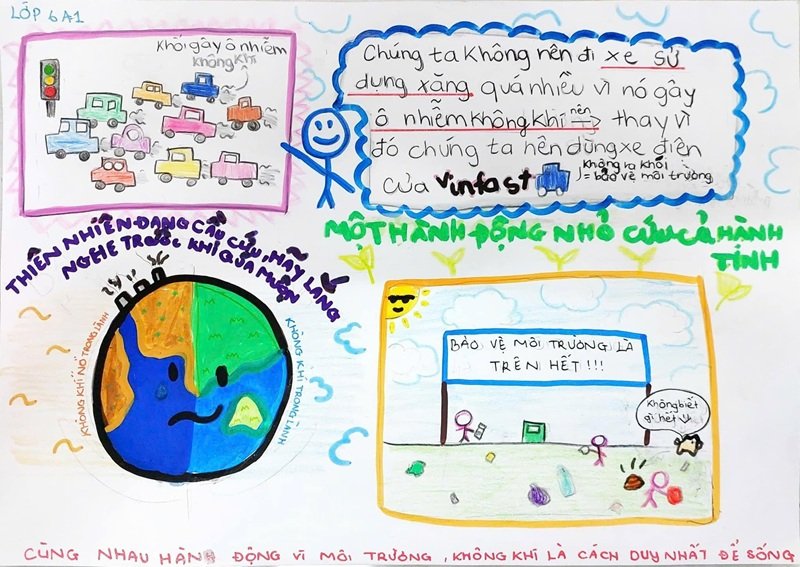 LỚP 6A1
Khói gây ô nhiễm
không khí
Chúng ta không nên đi xe sử
dụng xăng quá nhiều vì nó gây
ô nhiễm không khí nên → thay vì
đó chúng ta nên dùng xe điện
của vinfast
không ra khói
= bảo vệ môi trường
THIÊN NHIÊN ĐANG CẦU CỨU, HÃY LẮNG
NGHE TRƯỚC KHI QUÁ MUỘN
MỘT HÀNH ĐỘNG NHỎ CỨU CẢ HÀNH
TINH
KHÔNG KHÍ NÓ TRONG LÀNH
KHÔNG KHÍ TRONG LÀNH
BẢO VỆ MÔI TRƯỜNG LÀ
TRÊN HẾT !!!
Không biết
gì hết
CÙNG NHAU HÀNH ĐỘNG VÌ MÔI TRƯỜNG, KHÔNG KHÍ LÀ CÁCH DUY NHẤT ĐỂ SỐNG